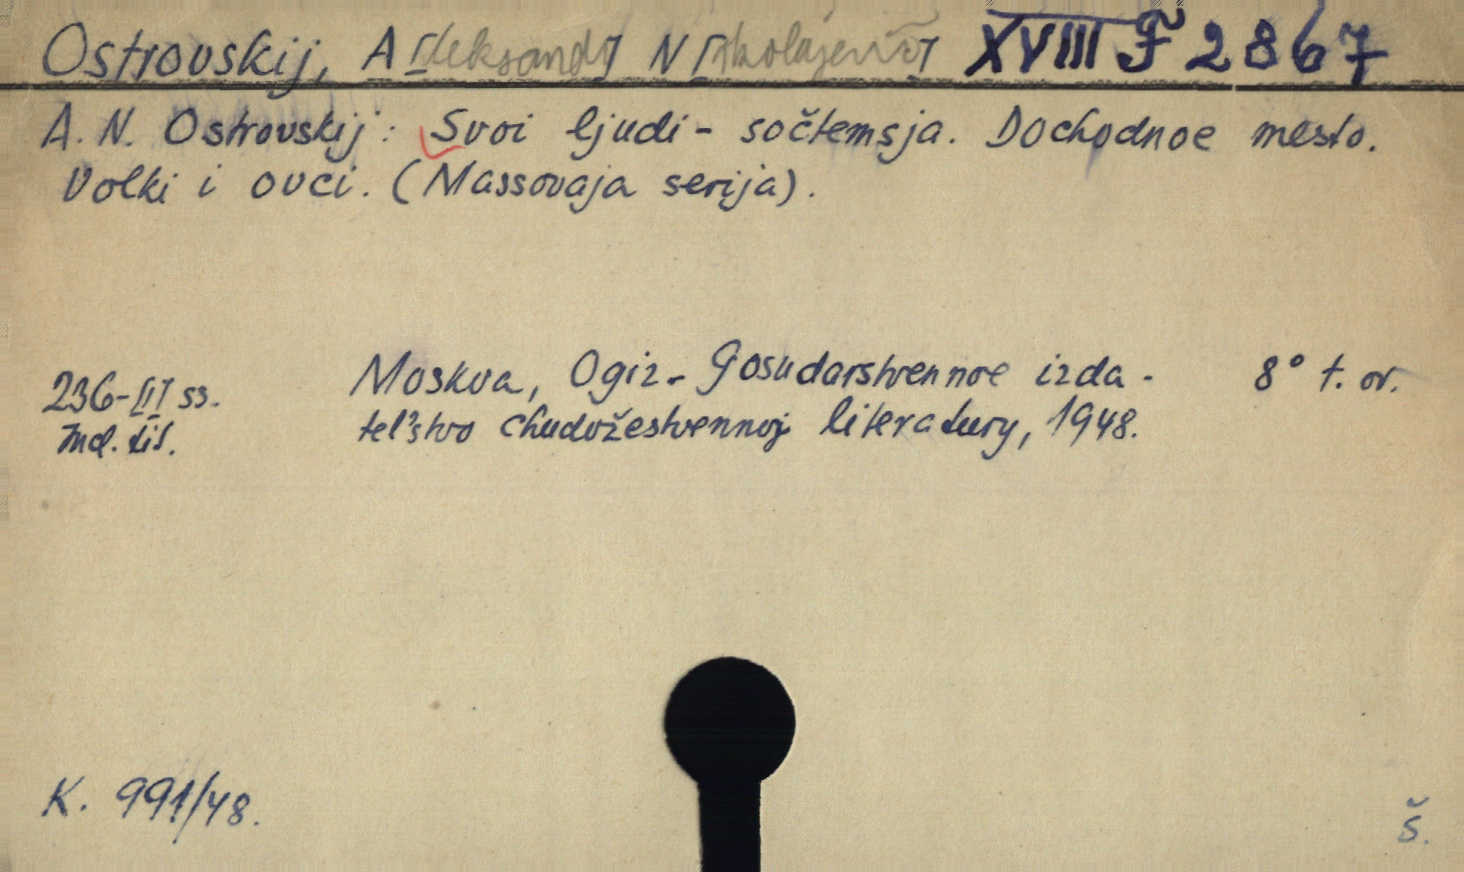 Ostrovskij, A[leksandr] N[ikolajevič] XVIII F 2867
A. N. Ostrovskij: Svoi ljudi - sočtemsja. Dochodnoe mesto.
Volki i ovci. (Massovaja serija).
236-[I] ss. Moskva, Ogiz - Gosudarstvennoe izda- 8° t. or.
tel'stvo chudožestvennoj literatury, 1948.
K. 991/48. š.